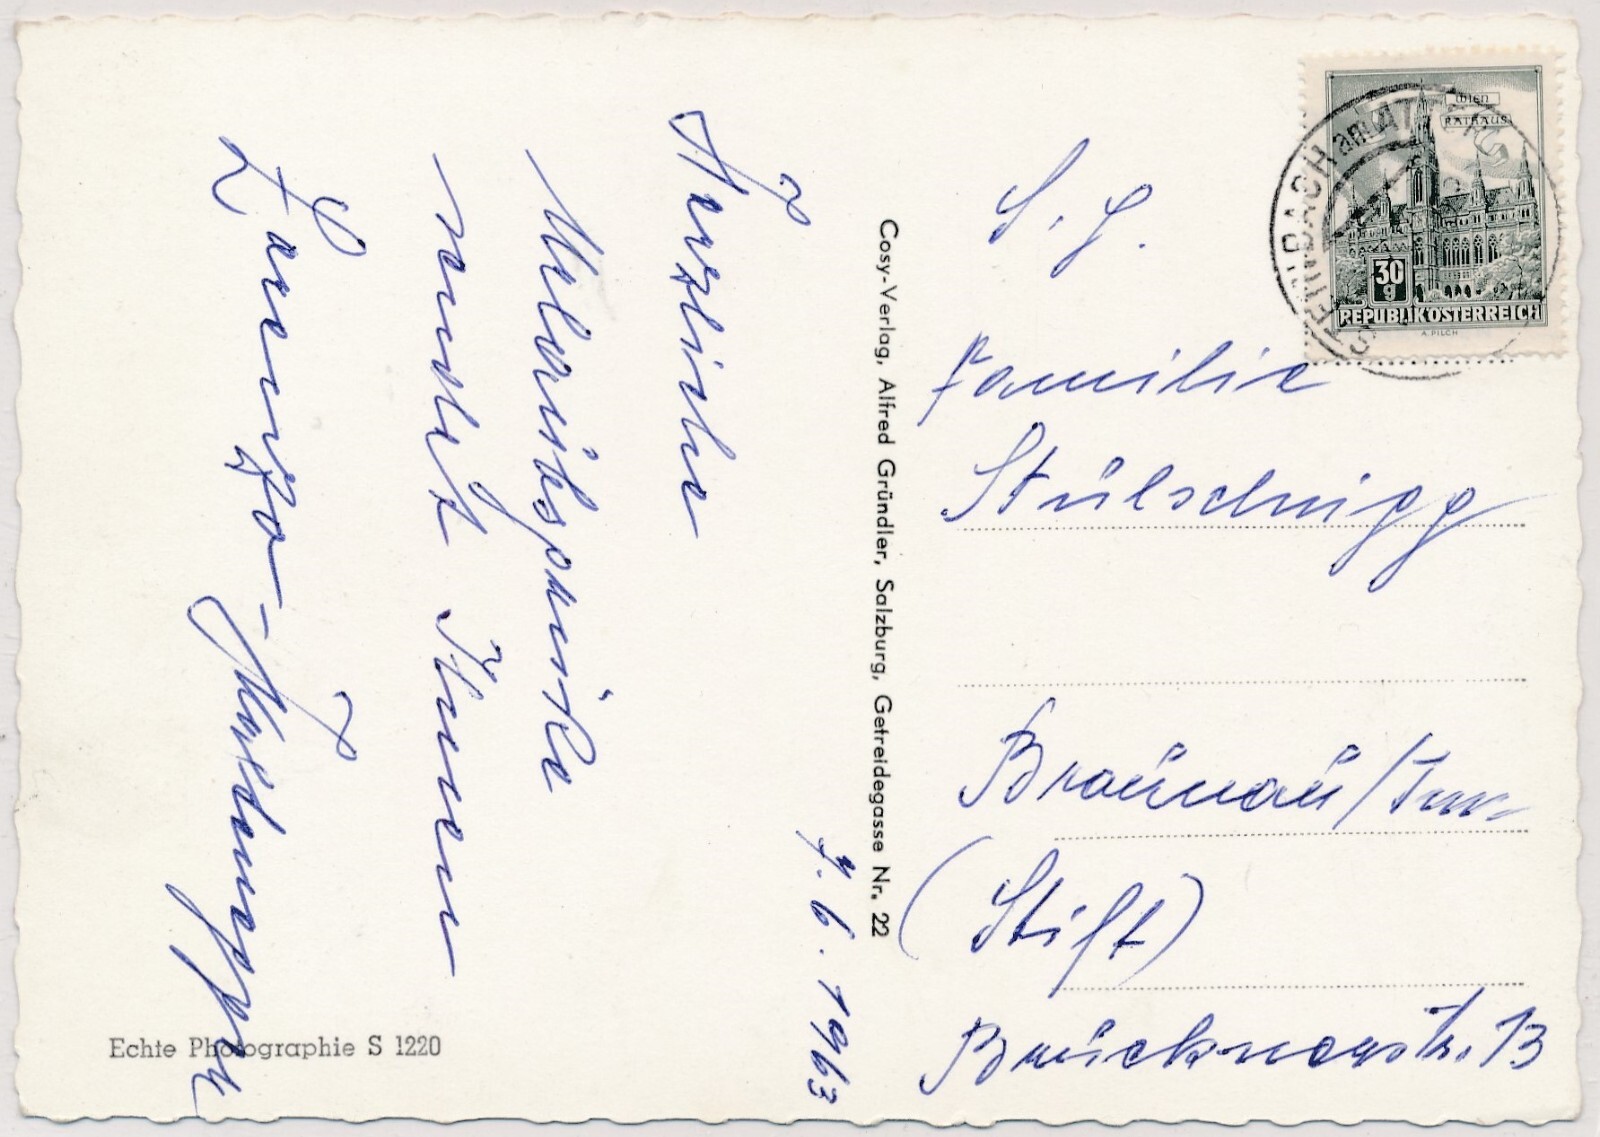 7. 6. 1963
Herzliche
Urlaubsgrüße
sendet Ihnen
S. g.
Familie
Stülschnigg
Braunau/Inn
(Stift)
Brücknerstr. 13
Cosy-Verlag, Alfred Gründler, Salzburg, Getreidegasse Nr. 22
Echte Photographie S 1220
Wien
RATHAUS
30
g
REPUBLIK ÖSTERREICH
A. PILCH
STEINDACH am